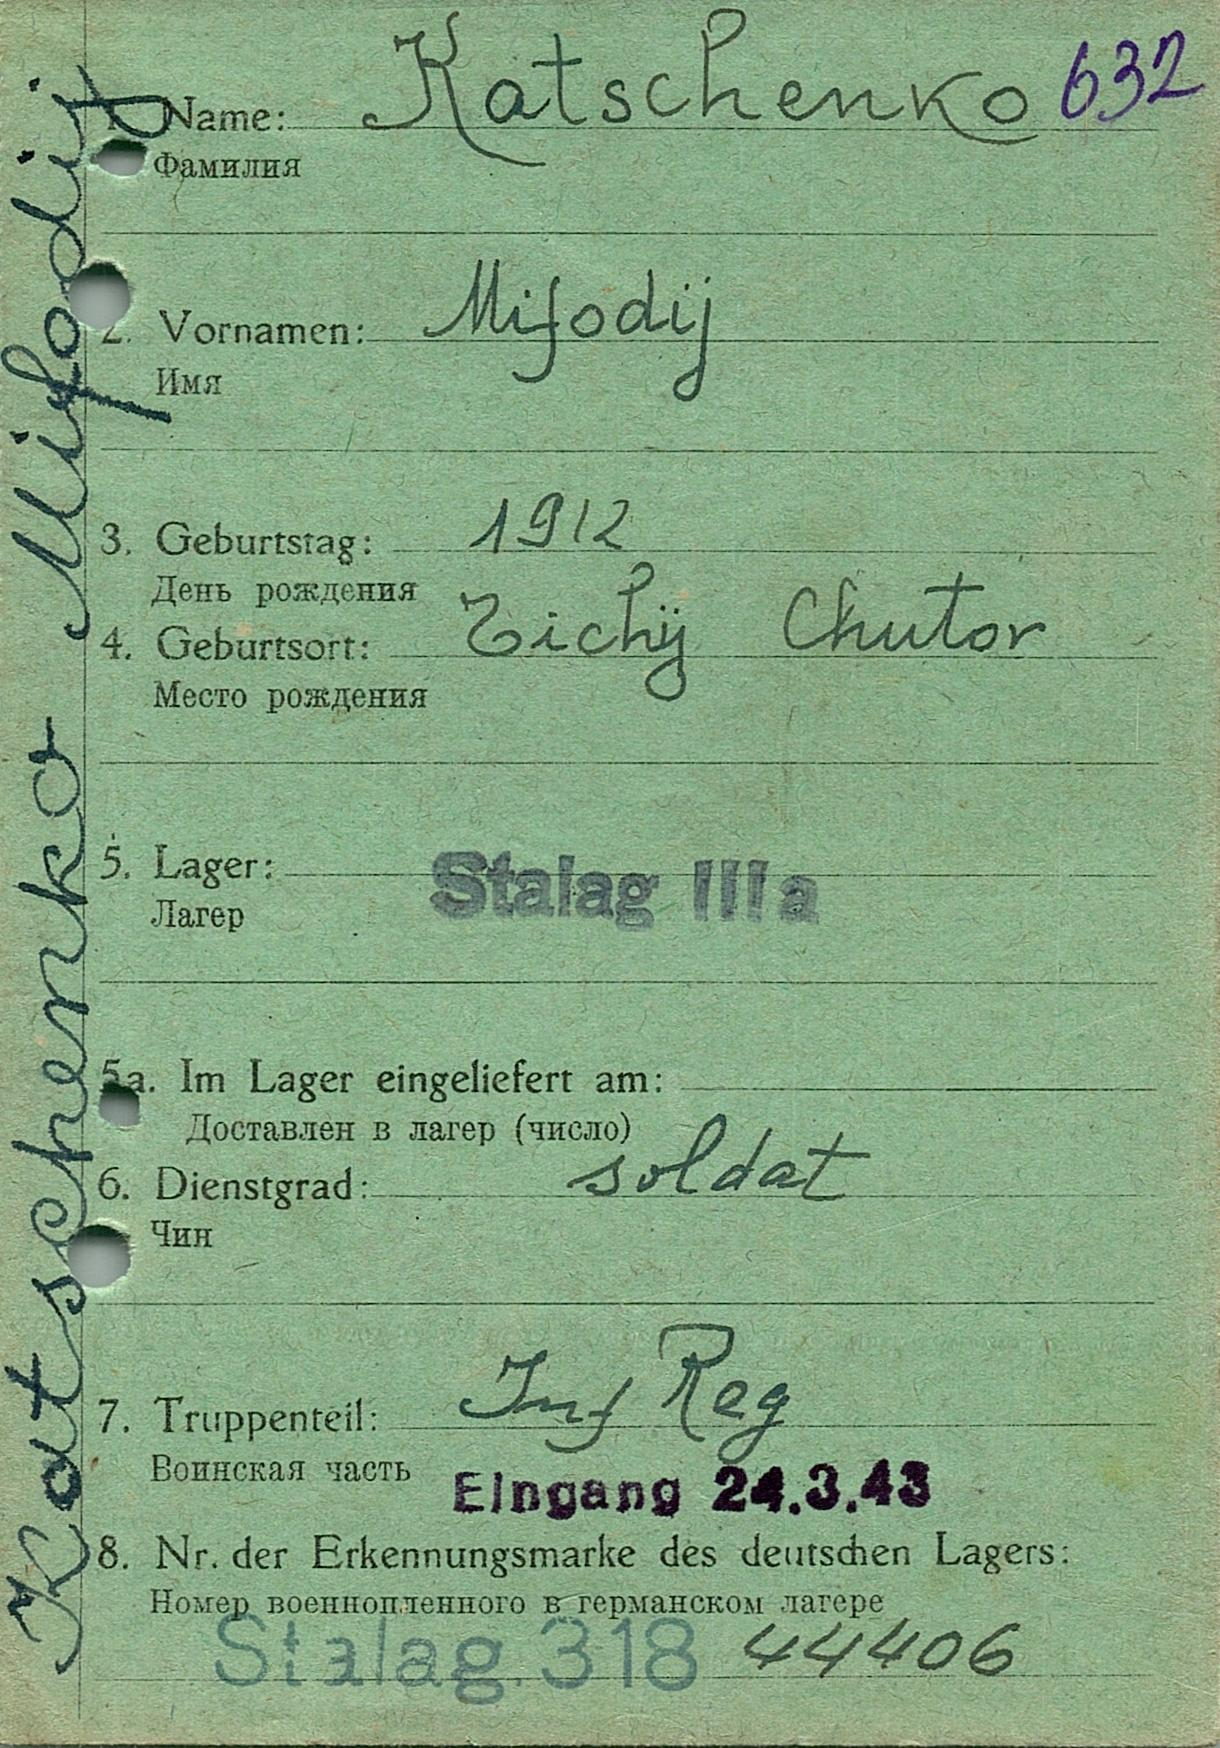 Katschenko 632
1. Name:
Фамилия
Mifodij
2. Vornamen:
Имя
1912
3. Geburtstag:
День рождения
Tichij Chutor
4. Geburtsort:
Место рождения
5. Lager: Stalag IIIa
Лагер
5a. Im Lager eingeliefert am:
Доставлен в лагер (число)
6. Dienstgrad: soldat
Чин
7. Truppenteil: Inf Reg
Воинская часть
Eingang 24.3.43
8. Nr. der Erkennungsmarke des deutschen Lagers:
Номер военнопленного в германском лагере
Stalag 318 44406
Katschenko Mifodij